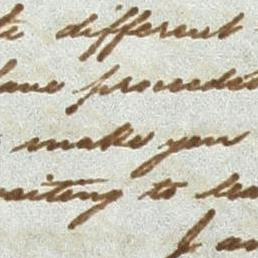 different
have proceeded
make you
waiting to
I am